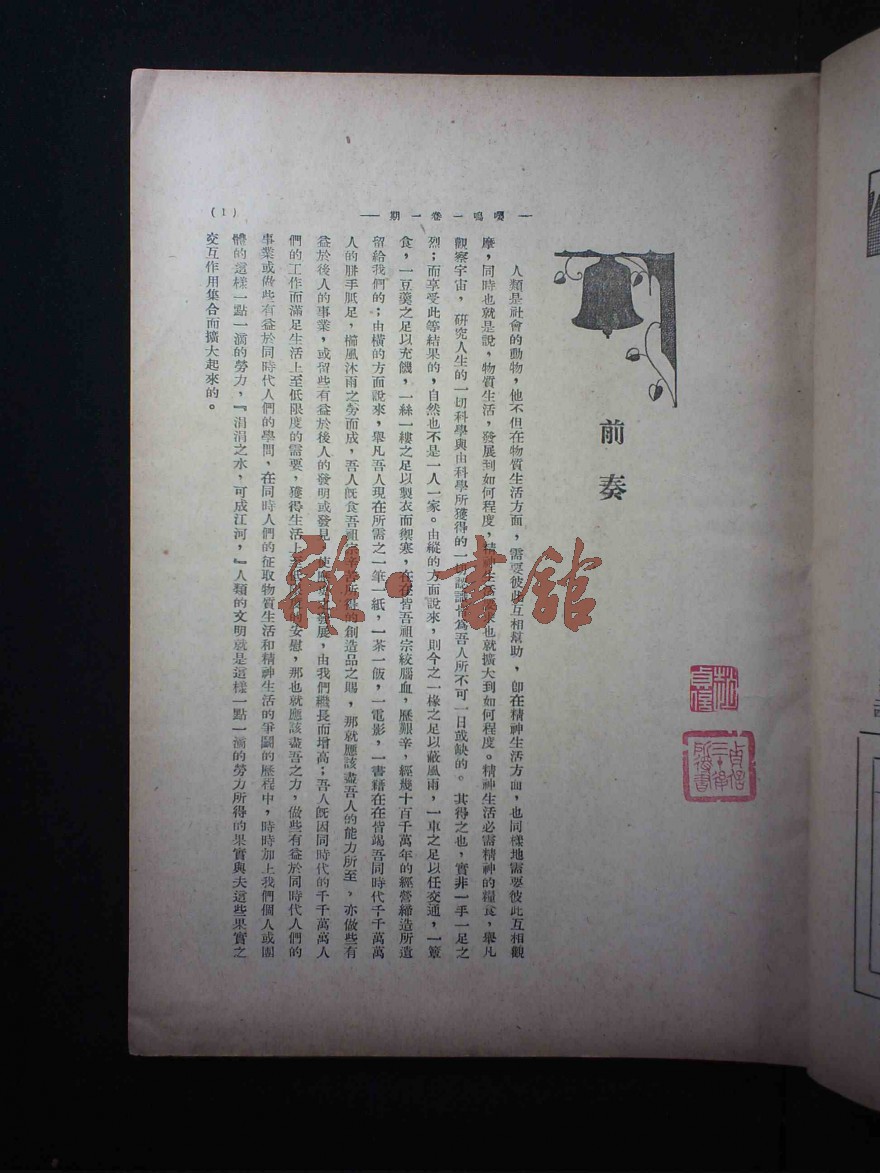 (1)
— 嚶鳴一卷一期 —
前奏
人類是社會的動物，他不但在物質生活方面，需要彼此互相幫助，卽在精神生活方面，也同樣地需要彼此互相觀
摩，同時也就是說，物質生活，發展到如何程度，精神生活 也就擴大到如何程度。精神生活必需精神的糧食，舉凡
觀察宇宙，研究人生的一切科學與由科學所獲得的一切認識皆爲吾人所不可一日或缺的。其得之也，實非一手一足之
烈；而享受此等結果的，自然也不是一人一家。由縱的方面說來，則今之一椽之足以蔽風雨，一車之足以任交通，一簞
食，一豆羹之足以充饑，一絲一縷之足以製衣而禦寒，在在皆吾祖宗絞腦血，歷艱辛，經幾十百千萬年的經營締造所遺
留給我們的；由橫的方面說來，舉凡吾人現在所需之一筆一紙，一茶一飯，一電影，一書籍在在皆竭吾同時代千千萬萬
人的胼手胝足，櫛風沐雨之勞而成，吾人旣食吾祖宗 的創造品之賜，那就應該盡吾人的能力所至，亦做些有
益於後人的事業，或留些有益於後人的發明或發見，使 發展，由我們繼長而增高；吾人旣因同時代的千千萬萬人
們的工作而滿足生活上至低限度的需要，獲得生活上至低 的安慰，那也就應該盡吾之力，做些有益於同時代人們的
事業或做些有益於同時代人們的學問，在同時人們的征取物質生活和精神生活的爭鬪的歷程中，時時加上我們個人或團
體的這樣一點一滴的勞力，『涓涓之水，可成江河，』人類的文明就是這樣一點一滴的勞力所得的果實與夫這些果實之
交互作用集合而擴大起來的。
雅·書館
杜貞信
貞信三十後所得書